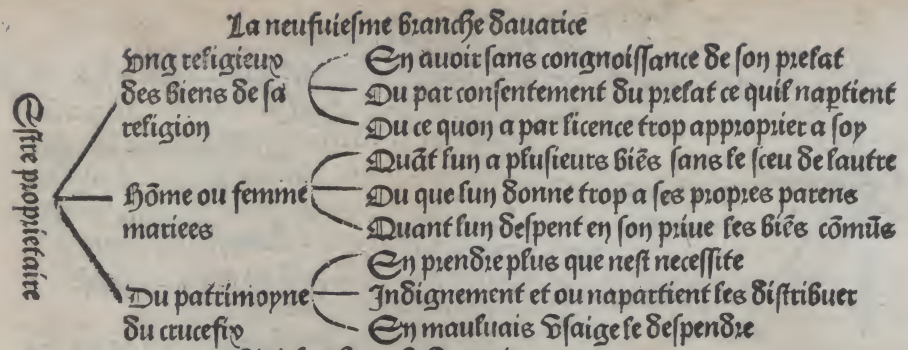 La neufuiesme branche dauarice
Estre proprietaire
vng religieux
des biens de sa
religion
En auoir sans congnoissance de son prelat
Ou par consentement du prelat ce quil naptient
Ou ce quon a par licence trop approprier a soy
Hõme ou femme
mariees
Quãt lun a plusieurs biẽs sans le sceu de lautre
Ou que lun donne trop a ses propres parens
Quant lun despent en son priue les biẽs cõmũs
Du patrimoyne
du crucefix
En prendre plus que nest necessite
Indignement et ou napartient les distribuer
En mauluais vsaige le despendre